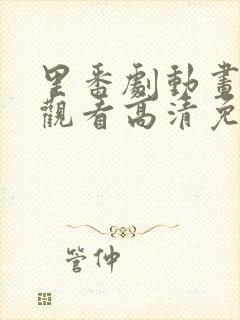 里番劇動畫
觀看高清免
管仲